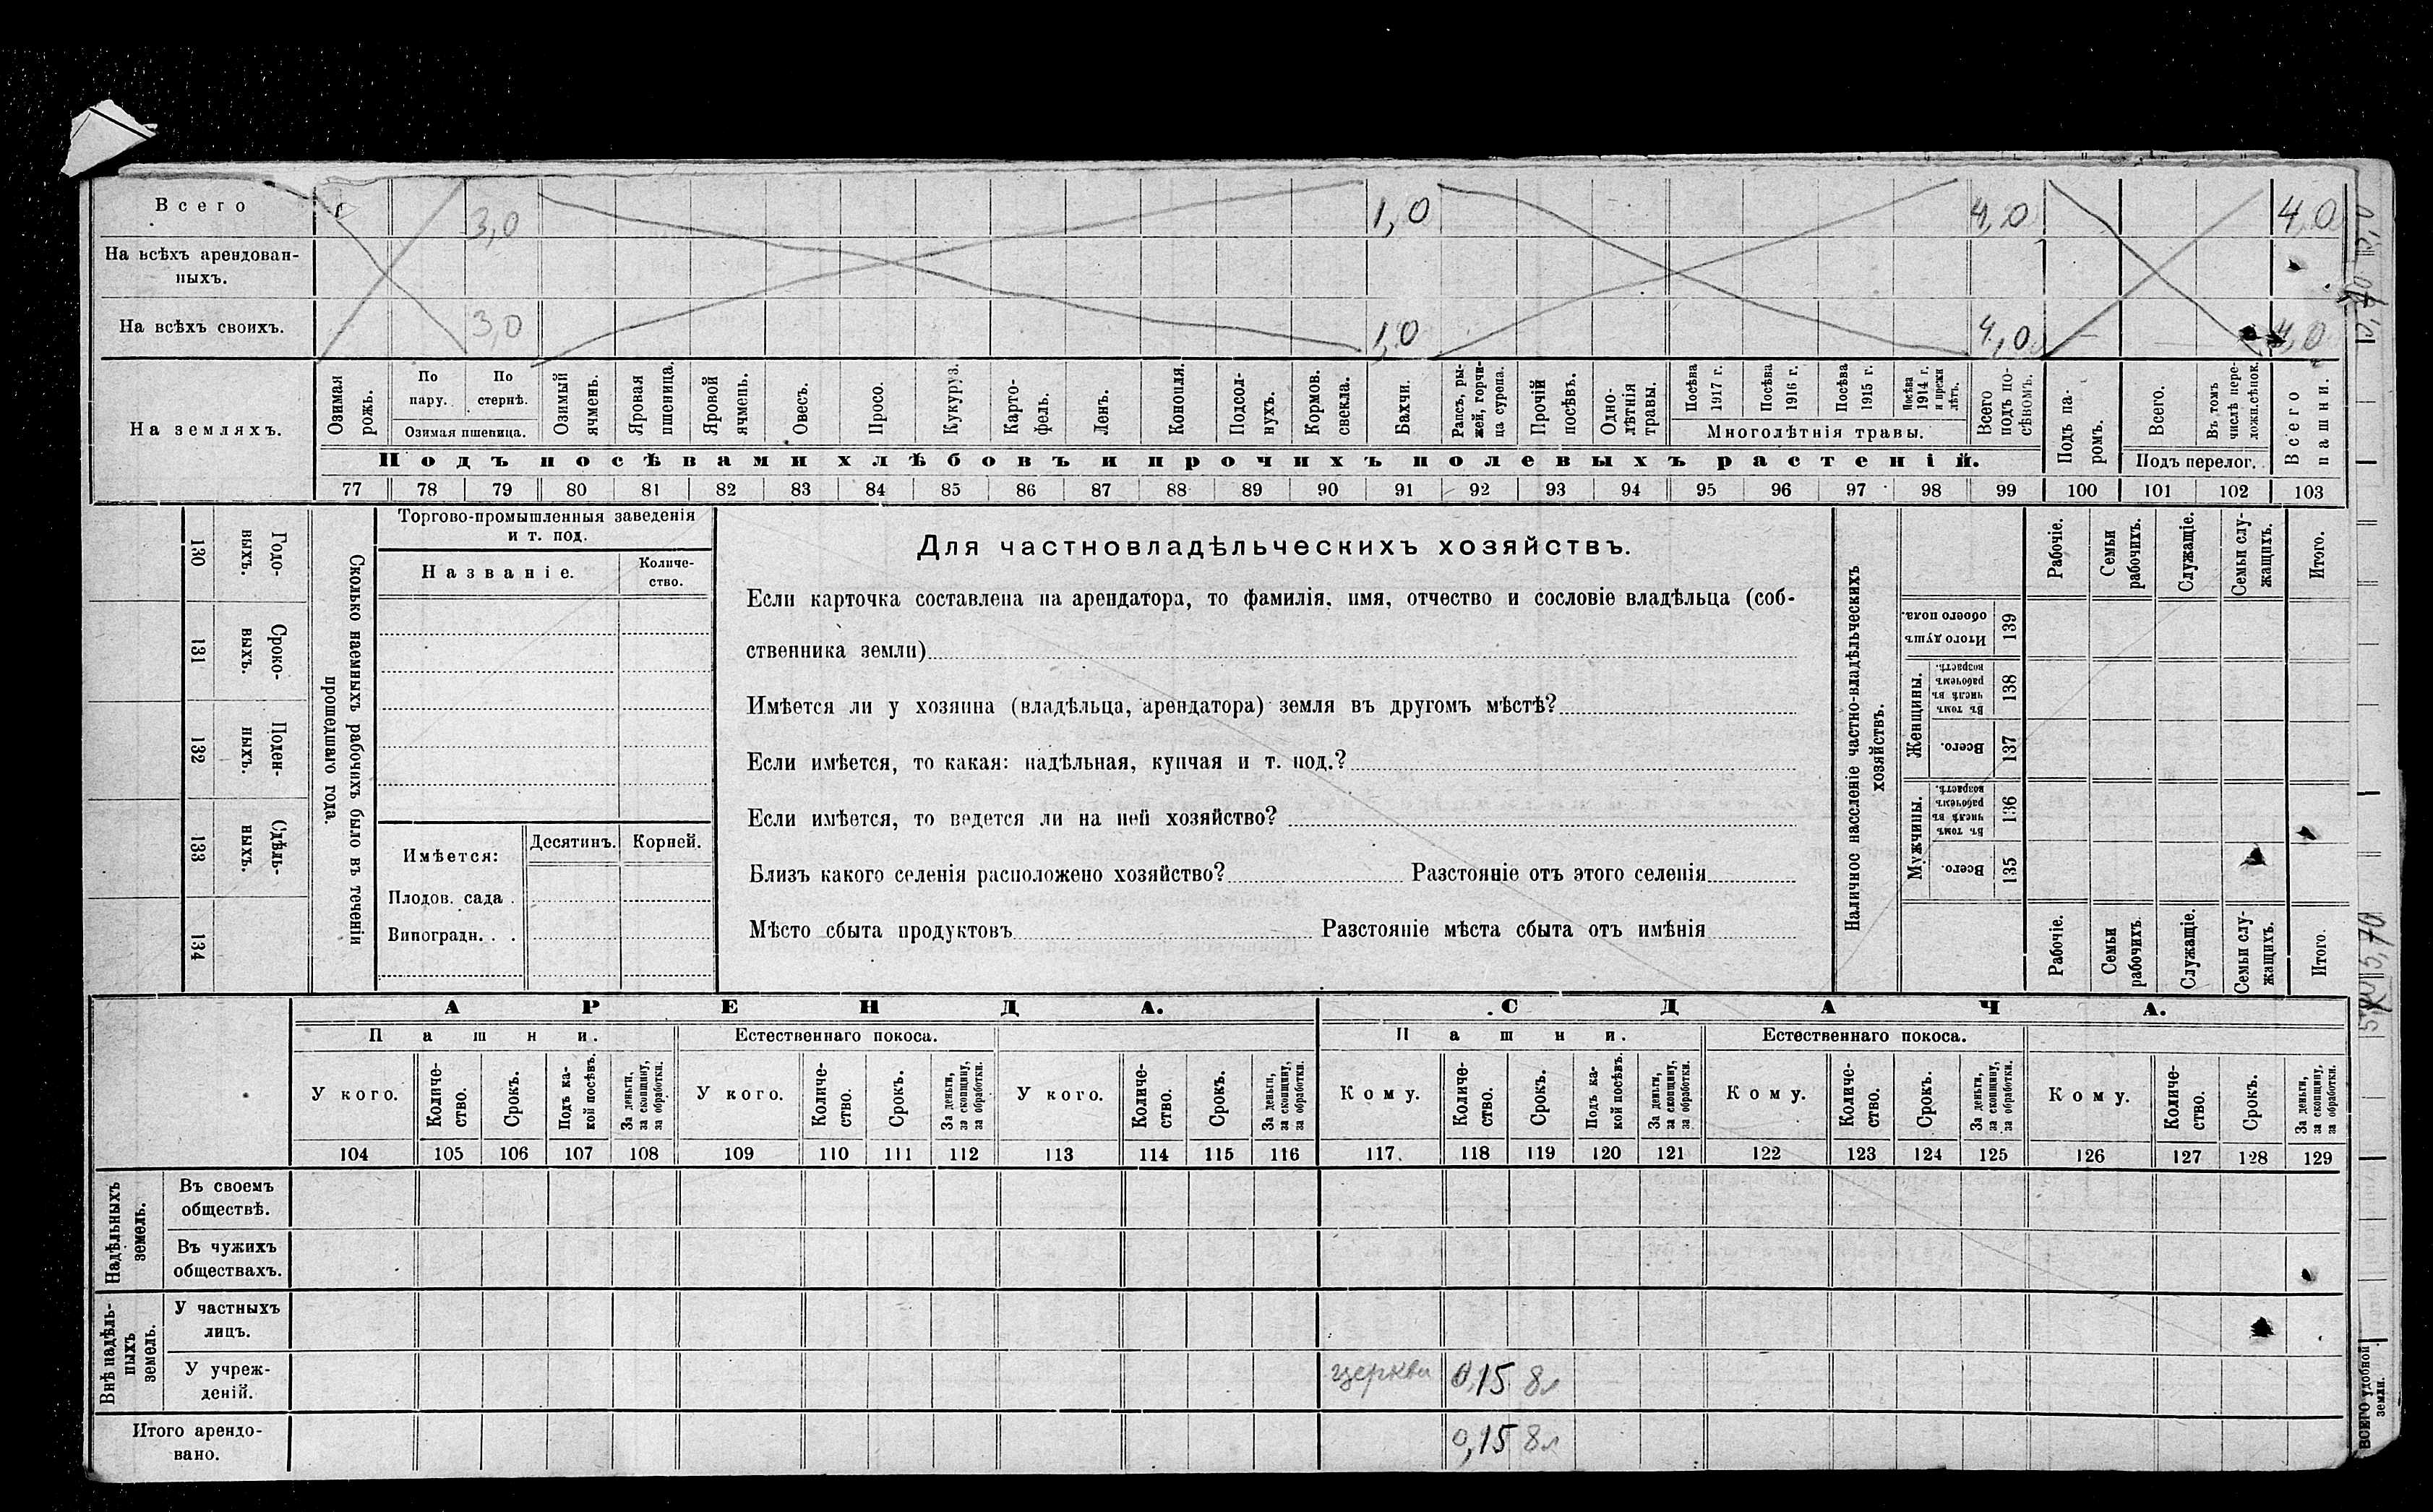 Всего 3,0 1,0 4,0 4,0
На всѣхъ арендован-
ныхъ.
На всѣхъ своихъ. 3,0 1,0 4,0 4,0
На земляхъ.
Озимая рожь.
По пару.
По стернѣ.
Озимая пшеница.
Озимый ячмень.
Яровая пшеница.
Яровой ячмень.
Овесъ.
Просо.
Кукуруз.
Карто-
фель.
Ленъ.
Конопля.
Подсол-
нухъ.
Кормов. свекла.
Бахчи.
Рапсъ, ры-
жей, горчи-
ца сурепа.
Прочій посѣвъ.
Одно-
лѣтнія травы.
Посѣва 1917 г.
Посѣва 1916 г.
Посѣва 1915 г.
Посѣва 1914 г. и прежн лѣтъ.
Многолѣтнія травы.
Всего подъ по-
сѣвомъ.
Подъ па-
ромъ.
Всего.
Въ томъ числѣ пере-
ложн.сѣнок.
Подъ перелог.
Всего пашни.
Подъ посѣвами хлѣбовъ и прочихъ полевыхъ растеній.
77 78 79 80 81 82 83 84 85 86 87 88 89 90 91 92 93 94 95 96 97 98 99 100 101 102 103
130 Годо-
выхъ.
131 Сроко-
выхъ.
132 Поден-
ныхъ.
133 Сдѣль-
ныхъ.
134
Сколько наемныхъ рабочихъ было въ теченіи
прошедшаго года.
Торгово-промышленныя заведенія
и т. под.
Названіе.
Количе-
ство.
Имѣется:
Десятинъ.
Корней.
Плодов. сада .
Виноградн. . .
Для частновладѣльческихъ хозяйствъ.
Если карточка составлена на арендатора, то фамилія, имя, отчество и сословіе владѣльца (соб-
ственника земли)
Имѣется ли у хозяина (владѣльца, арендатора) земля въ другомъ мѣстѣ?
Если имѣется, то какая: надѣльная, купчая и т. под.?
Если имѣется, то ведется ли на ней хозяйство?
Близъ какого селенія расположено хозяйство? Разстояніе отъ этого селенія
Мѣсто сбыта продуктовъ Разстояніе мѣста сбыта отъ имѣнія
Наличное населеніе частно-владѣльческихъ
хозяйствъ.
Рабочіе.
Семьи рабочихъ.
Служащіе.
Семьи слу-
жащихъ.
Итого.
Итого душъ обоего пола. 139
Женщины.
Въ томъ числѣ въ рабочемъ возрастѣ. 138
Всего. 137
Мужчины.
Въ томъ числѣ въ рабочемъ возрастѣ. 136
Всего. 135
Рабочіе.
Семьи рабочихъ.
Служащіе.
Семьи слу-
жащихъ.
Итого.
АРЕНДА. СДАЧА.
Пашни. Естественнаго покоса. Пашни. Естественнаго покоса.
У кого.
Количе-
ство.
Срокъ.
Подъ ка-
кой посѣвъ.
За деньги,
за скопщину,
за обработки.
У кого.
Количе-
ство.
Срокъ.
За деньги,
за скопщину,
за обработки.
У кого.
Количе-
ство.
Срокъ.
За деньги,
за скопщину,
за обработки.
Кому.
Количе-
ство.
Срокъ.
Подъ ка-
кой посѣвъ.
За деньги,
за скопщину,
за обработки.
Кому.
Количе-
ство.
Срокъ.
За деньги,
за скопщину,
за обработки.
Кому.
Количе-
ство.
Срокъ.
За деньги,
за скопщину,
за обработки.
104 105 106 107 108 109 110 111 112 113 114 115 116 117. 118 119 120 121 122 123 124 125 126 127 128 129
Надѣльныхъ земель.
Въ своемъ
обществѣ.
Въ чужихъ
обществахъ.
Внѣ надѣль-
ныхъ земель.
У частныхъ
лицъ.
У учреж-
деній. церкви 0,15 8л
Итого арендо-
вано. 0,15 8л
ВСЕГО удобной
земли.